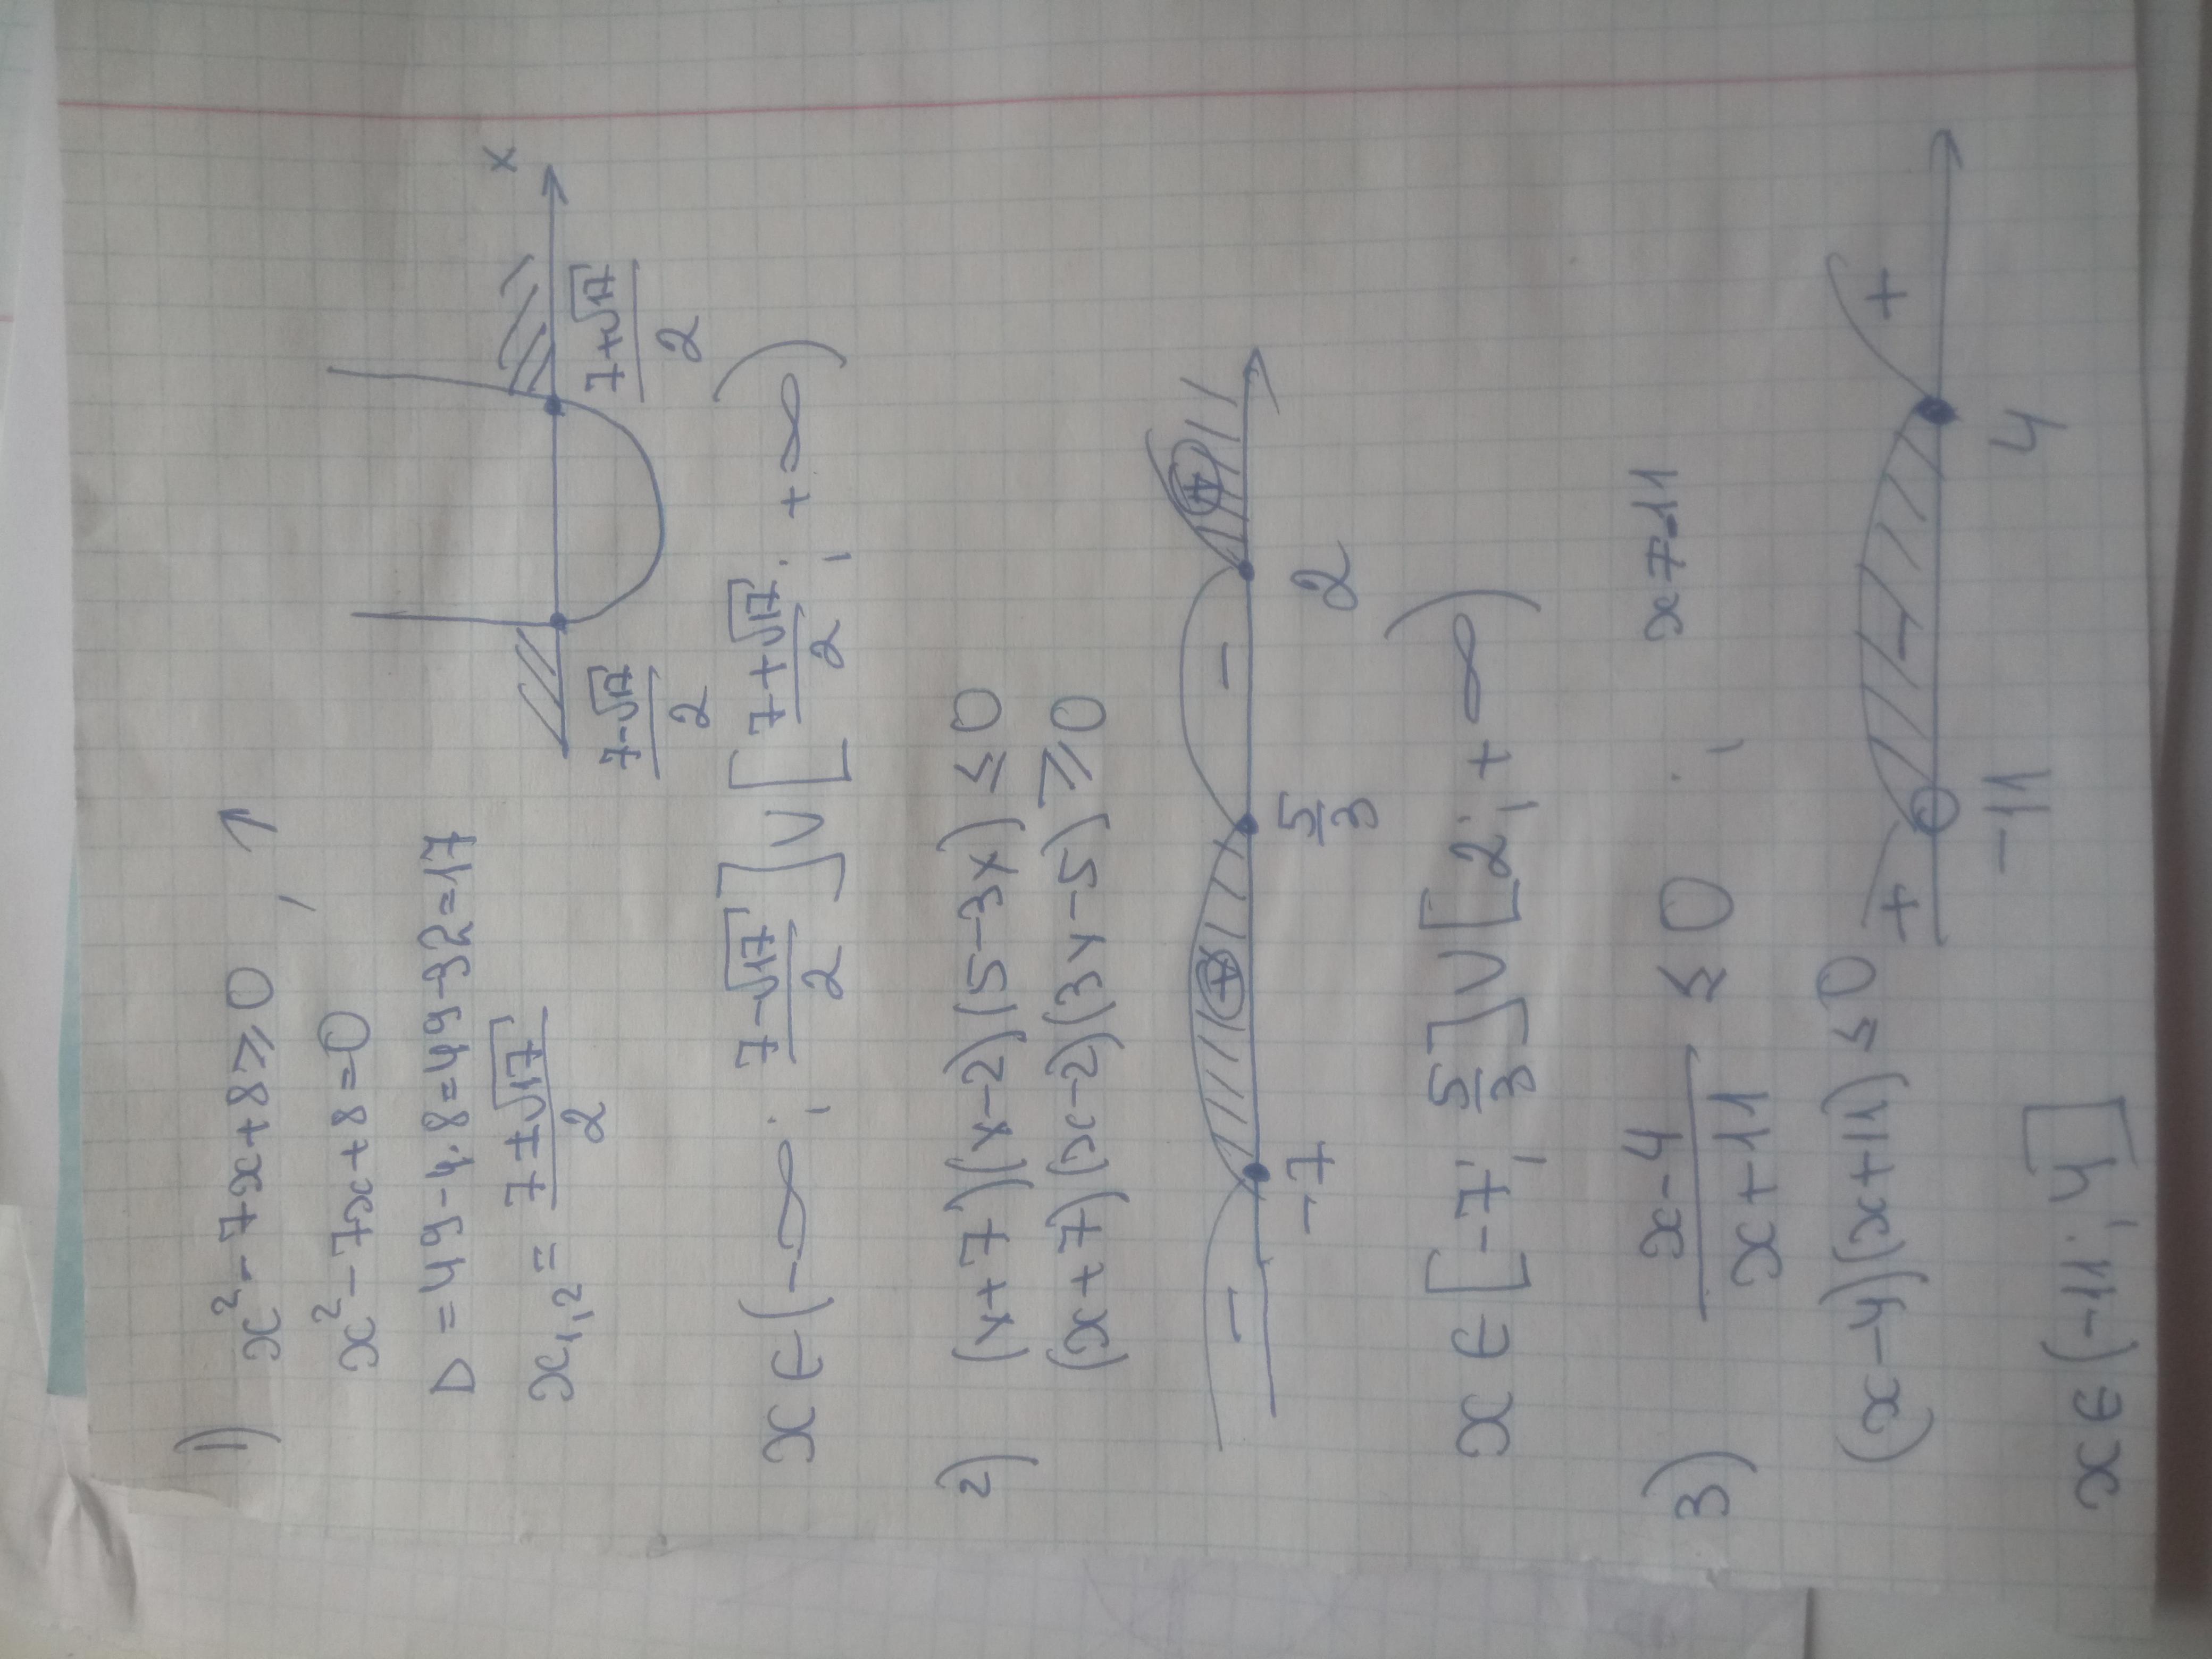 1) x² - 7x + 8 ≥ 0 , ↑
x² - 7x + 8 = 0
D = 49 - 4·8 = 49 - 32 = 17
x₁,₂ = (7 ± √17)/2
x
(7-√17)/2 (7+√17)/2
x ∈ (-∞; (7-√17)/2] ∪ [(7+√17)/2; +∞)
2) (x+7)(x-2)(5-3x) ≤ 0
(x+7)(x-2)(3x-5) ≥ 0
- + - +
-7 5/3 2
x ∈ [-7; 5/3] ∪ [2; +∞)
3) (x-4)/(x+11) ≤ 0 ; x ≠ -11
(x-4)(x+11) ≤ 0
+ - +
-11 4
x ∈ (-11; 4]